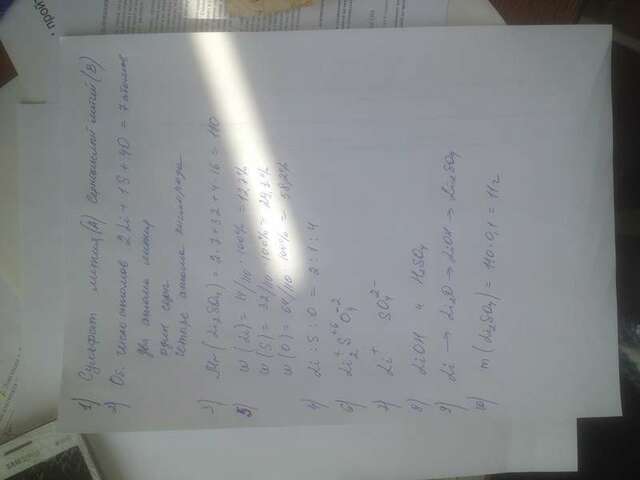 1) Сульфат лития (А) Сернокислый литий (В)
2) Об. число атомов 2Li + 1S + 4O = 7 атомов
два атома лития
один серы
четыре атома кислорода
3) Mr (Li₂SO₄) = 2·7+32+4·16 = 110
5) w (Li) = 14/110 · 100% = 12,7%
w (S) = 32/110 · 100% = 29,1%
w (O) = 64/110 · 100% = 58,2%
4) Li : S : O = 2 : 1 : 4
6) Li₂⁺ S⁺⁶ O₄⁻²
7) Li⁺ SO₄²⁻
8) LiOH и H₂SO₄
9) Li → Li₂O → LiOH → Li₂SO₄
10) m (Li₂SO₄) = 110·0,1 = 11г